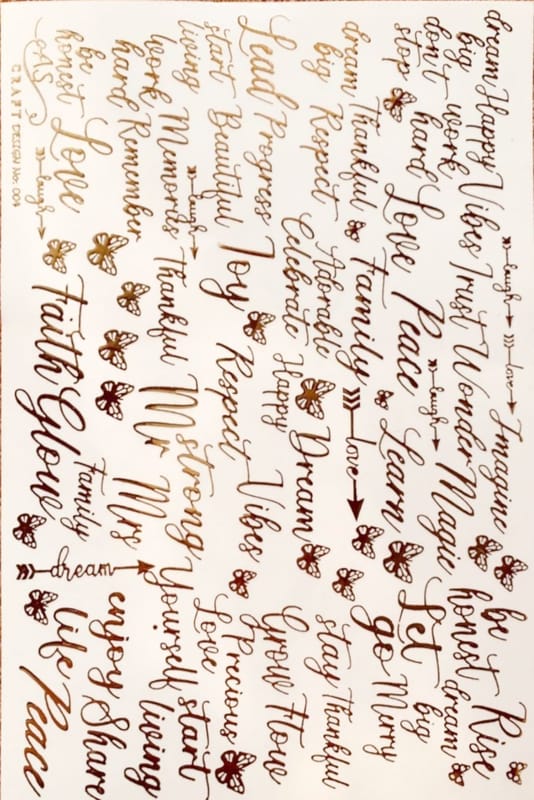 dream Happy Vibes laugh love Imagine be Rise
big work Trust Wonder honest dream
don't hard laugh Magic big
stop Love Peace Learn Let
dream Thankful Family love go Merry
big Respect Adorable stay Thankful
Celebrate Happy Dream Grow How
Lead Progress Vibes Precious
start Beautiful Joy Respect Love
living laugh strong Yourself start
work Memords Thankful Mr living
hard Remember Mrs enjoy Share
be Family dream
honest Love Faith Glow life Peace
AS laugh
CRAFT DESIGN No. 004